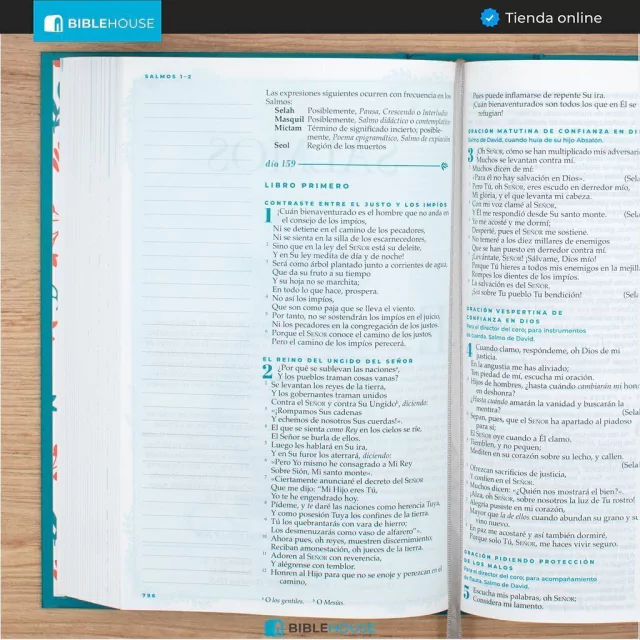 BIBLEHOUSE
Tienda online
SALMOS 1–2
Las expresiones siguientes ocurren con frecuencia en los
Salmos:
Selah Posiblemente, Pausa, Crescendo o Interludio
Masquil Posiblemente, Salmo didáctico o contemplativo
Mictam Término de significado incierto; posible-
mente, Poema epigramático, Salmo de expiación
Seol Región de los muertos
día 159
LIBRO PRIMERO
CONTRASTE ENTRE EL JUSTO Y LOS IMPÍOS
1 ¡Cuán bienaventurado es el hombre que no anda en
el consejo de los impíos,
Ni se detiene en el camino de los pecadores,
Ni se sienta en la silla de los escarnecedores,
2 Sino que en la ley del SEÑOR está su deleite,
Y en Su ley medita de día y de noche!
3 Será como árbol plantado junto a corrientes de agua,
Que da su fruto a su tiempo
Y su hoja no se marchita;
En todo lo que hace, prospera.
4 No así los impíos,
Que son como paja que se lleva el viento.
5 Por tanto, no se sostendrán los impíos en el juicio,
Ni los pecadores en la congregación de los justos.
6 Porque el SEÑOR conoce el camino de los justos,
Pero el camino de los impíos perecerá.
EL REINO DEL UNGIDO DEL SEÑOR
2 ¿Por qué se sublevan las naciones,
Y los pueblos traman cosas vanas?
2 Se levantan los reyes de la tierra,
Y los gobernantes traman unidos
Contra el SEÑOR y contra Su Ungido, diciendo:
3 «¡Rompamos Sus cadenas
Y echemos de nosotros Sus cuerdas!».
4 El que se sienta como Rey en los cielos se ríe,
El Señor se burla de ellos.
5 Luego les hablará en Su ira,
Y en Su furor los aterrará, diciendo:
6 «Pero Yo mismo he consagrado a Mi Rey
Sobre Sión, Mi santo monte».
7 «Ciertamente anunciaré el decreto del SEÑOR
Que me dijo: "Mi Hijo eres Tú,
Yo te he engendrado hoy.
8 Pídeme, y te daré las naciones como herencia Tuya,
Y como posesión Tuya los confines de la tierra.
9 Tú los quebrantarás con vara de hierro;
Los desmenuzarás como vaso de alfarero"».
10 Ahora pues, oh reyes, muestren discernimiento;
Reciban amonestación, oh jueces de la tierra.
11 Adoren al SEÑOR con reverencia,
Y alégrense con temblor.
12 Honren al Hijo para que no se enoje y perezcan en el
camino,
O los gentiles. O Mesías.
798
Pues puede inflamarse de repente Su ira.
¡Cuán bienaventurados son todos los que en Él se
refugian!
ORACIÓN MATUTINA DE CONFIANZA EN DI
Salmo de David, cuando huía de su hijo Absalón.
3 ¡Oh SEÑOR, cómo se han multiplicado mis adversari
Muchos se levantan contra mí.
Muchos dicen de mí:
«Para él no hay salvación en Dios». (Sela
Pero Tú, oh SEÑOR, eres escudo en derredor mío,
Mi gloria, y el que levanta mi cabeza.
Con mi voz clamé al SEÑOR,
Y Él me respondió desde Su santo monte. (Sela
Yo me acosté y me dormí;
Desperté, pues el SEÑOR me sostiene.
No temeré a los diez millares de enemigos
Que se han puesto en derredor contra mí.
¡Levántate, SEÑOR! ¡Sálvame, Dios mío!
Porque Tú hieres a todos mis enemigos en la mejill
Rompes los dientes de los impíos.
La salvación es del SEÑOR.
¡Sea sobre Tu pueblo Tu bendición! (Sel
ORACIÓN VESPERTINA DE
CONFIANZA EN DIOS
Para el director del coro; para instrumentos
de cuerda. Salmo de David.
4 Cuando clamo, respóndeme, oh Dios de mi
justicia.
En la angustia me has aliviado;
Ten piedad de mí, escucha mi oración.
Hijos de hombres, ¿hasta cuándo cambiarán mi honr
en deshonra?
¿Hasta cuándo amarán la vanidad y buscarán la
mentira? (Sela
Sepan, pues, que el SEÑOR ha apartado al piadoso
para sí;
El SEÑOR oye cuando a Él clamo.
Tiemblen, y no pequen;
Mediten en su corazón sobre su lecho, y callen.
(Sela
Ofrezcan sacrificios de justicia,
Y confíen en el SEÑOR.
Muchos dicen: «¿Quién nos mostrará el bien?».
¡Alza, oh SEÑOR, sobre nosotros la luz de Tu rostro!
Alegría pusiste en mi corazón,
Mayor que la de ellos cuando abundan su grano y su
vino nuevo.
En paz me acostaré y así también dormiré,
Porque solo Tú, SEÑOR, me haces vivir seguro.
ORACIÓN PIDIENDO PROTECCIÓN
DE LOS MALOS
Para el director del coro; para acompañamiento
de flauta. Salmo de David.
5 Escucha mis palabras, oh SEÑOR;
Considera mi lamento.
BIBLEHOUSE